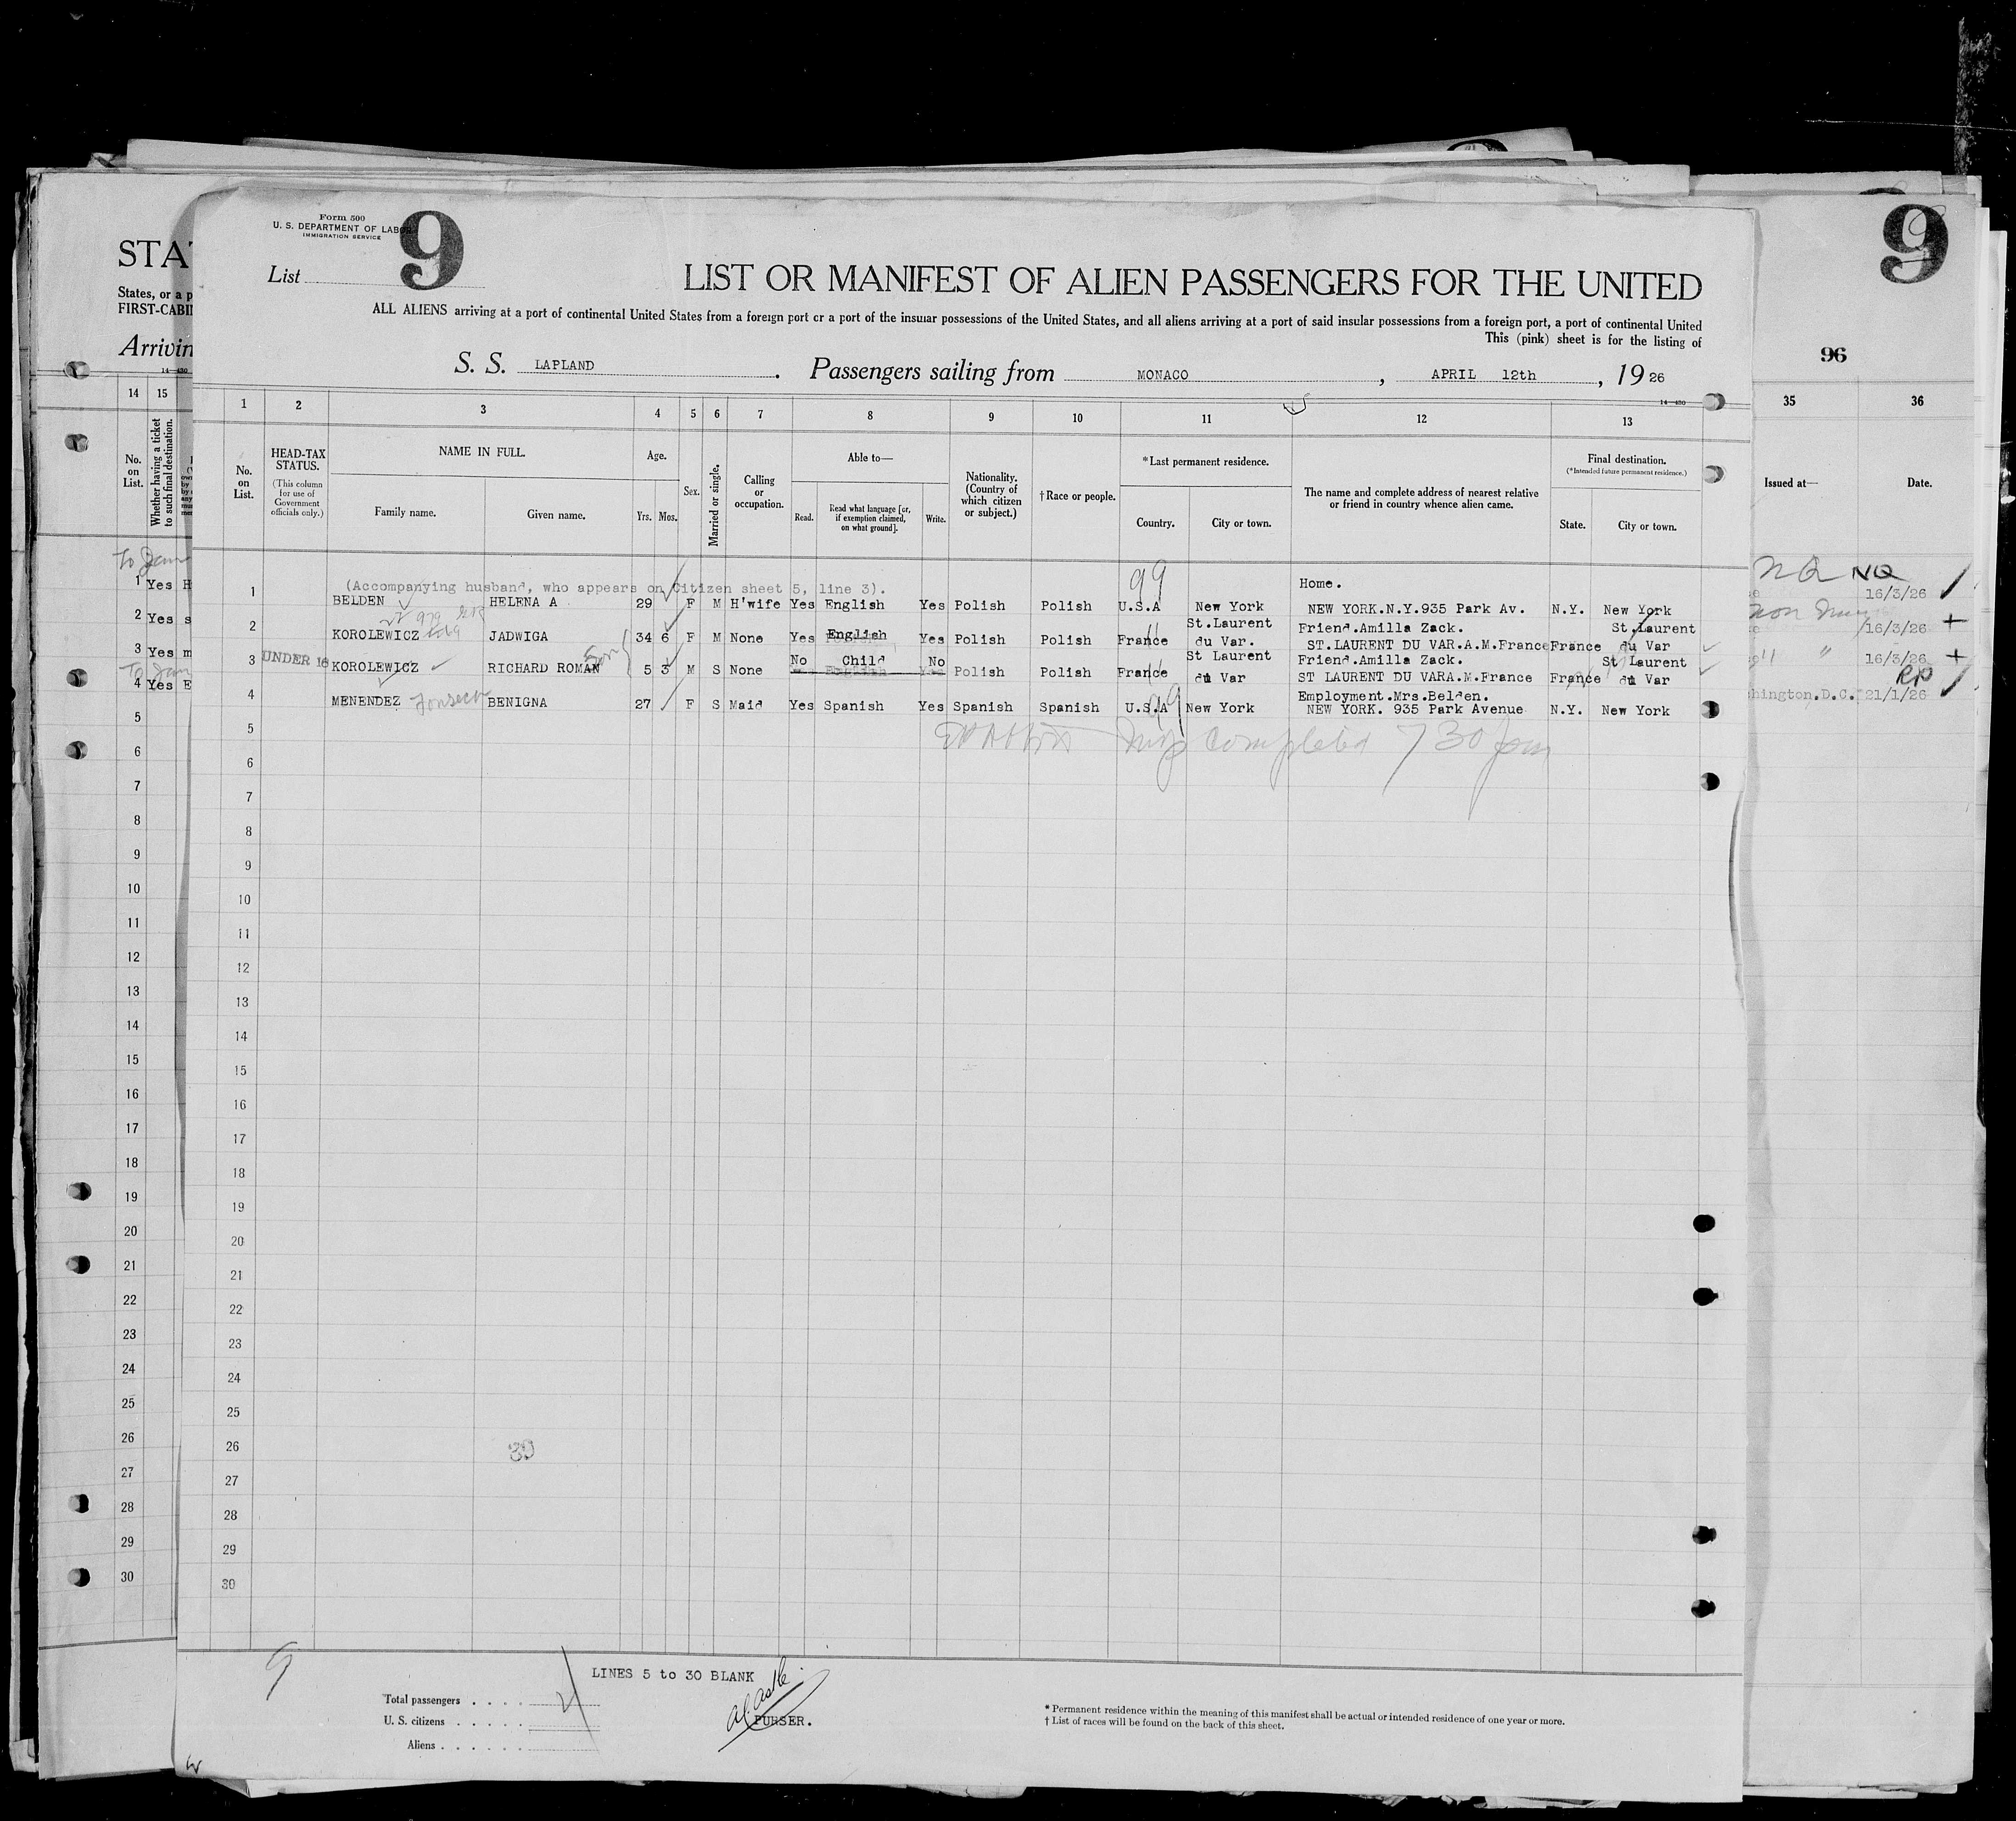 Form 500
U. S. DEPARTMENT OF LABOR
IMMIGRATION SERVICE
9
List
LIST OR MANIFEST OF ALIEN PASSENGERS FOR THE UNITED
ALL ALIENS arriving at a port of continental United States from a foreign port or a port of the insular possessions of the United States, and all aliens arriving at a port of said insular possessions from a foreign port, a port of continental United
This (pink) sheet is for the listing of
S. S. LAPLAND. Passengers sailing from MONACO, APRIL 12th, 1926
14—430
1 2 3 4 5 6 7 8 9 10 11 12 13
No. on List.
HEAD-TAX STATUS.
(This column for use of Government officials only.)
NAME IN FULL.
Family name.
Given name.
Age.
Yrs. Mos.
Sex.
Married or single.
Calling or occupation.
Able to—
Read.
Read what language [or, if exemption claimed, on what ground].
Write.
Nationality. (Country of which citizen or subject.)
†Race or people.
*Last permanent residence.
Country.
City or town.
The name and complete address of nearest relative or friend in country whence alien came.
Final destination.
(*Intended future permanent residence.)
State.
City or town.
(Accompanying husband, who appears on Citizen sheet 5, line 3).
99
Home.
1 BELDEN HELENA A 29 F M H'wife Yes English Yes Polish Polish U.S.A New York NEW YORK.N.Y.935 Park Av. N.Y. New York
St.Laurent Friend.Amilla Zack. St.Laurent
2 KOROLEWICZ JADWIGA 34 6 F M None Yes English Yes Polish Polish France du Var. ST.LAURENT DU VAR.A.M.France France du Var
Son
No Child No St Laurent Friend.Amilla Zack. St Laurent
3 UNDER 16 KOROLEWICZ RICHARD ROMAN 5 3 M S None Yes English Yes Polish Polish France du Var ST LAURENT DU VARA.M.France France du Var
99
Employment.Mrs.Belden.
4 MENENDEZ Fonseca BENIGNA 27 F S Maid Yes Spanish Yes Spanish Spanish U.S.A New York NEW YORK. 935 Park Avenue N.Y. New York
completed 7 30 pm
5
6
7
8
9
10
11
12
13
14
15
16
17
18
19
20
21
22
23
24
25
26
39
27
28
29
30
9
LINES 5 to 30 BLANK
Total passengers . . . .
U. S. citizens . . . . .
Aliens . . . . . .
PURSER.
* Permanent residence within the meaning of this manifest shall be actual or intended residence of one year or more.
† List of races will be found on the back of this sheet.
STA
States, or a p
FIRST-CABI
Arrivin
14—430
14 15
No. on List.
Whether having a ticket to such final destination.
1 Yes H
2 Yes s
3 Yes m
4 Yes E
5
6
7
8
9
10
11
12
13
14
15
16
17
18
19
20
21
22
23
24
25
26
27
28
29
30
9
96
35 36
Issued at— Date.
NQ NQ
16/3/26
16/3/26
" " 16/3/26
hington.D.C. 21/1/26